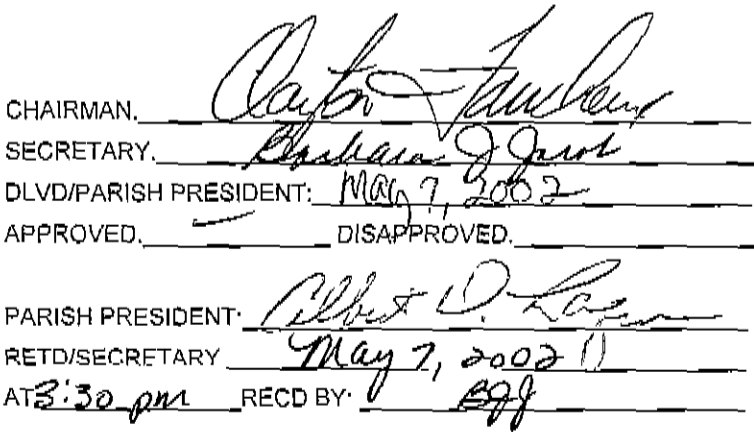 CHAIRMAN. Clayton Faucheux
SECRETARY. Barbara J. Jacob
DLVD/PARISH PRESIDENT: May 7, 2002
APPROVED. DISAPPROVED.
PARISH PRESIDENT: Albert D.
RETD/SECRETARY May 7, 2002
AT 3:30 pm RECD BY: BJJ